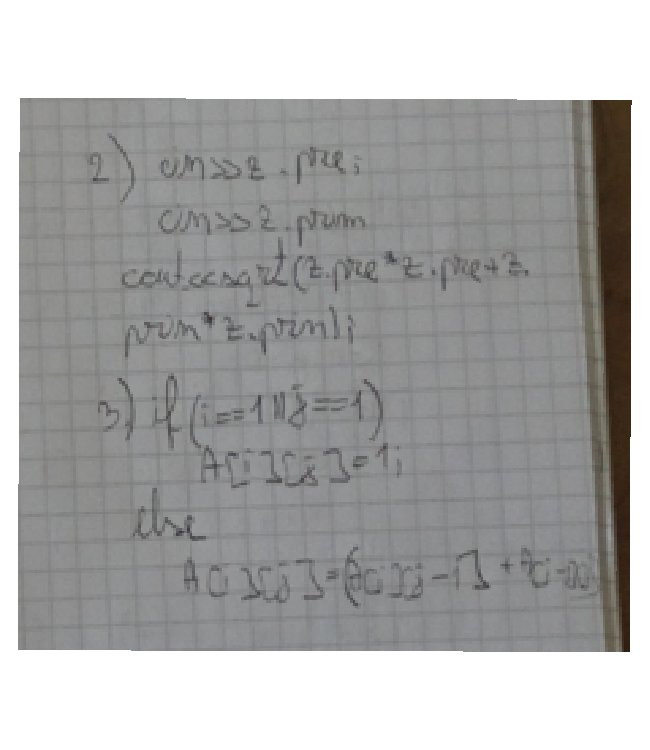 2) cin>>z.pre;
cin>>z.prim
cout<<sqrt(z.pre*z.pre+z.
prim*z.prim);
3) if(i==1||j==1)
A[i][j]=1;
else
A[i][j]=(A[i][j-1]+A[i-